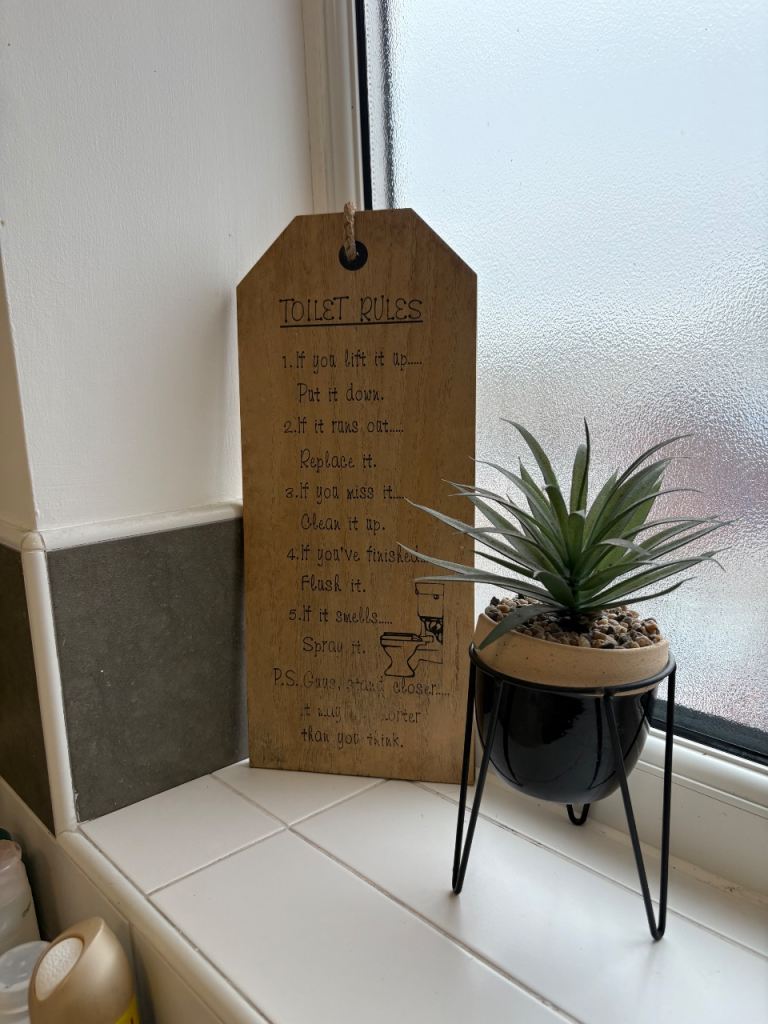 TOILET RULES
1. If you lift it up.....
Put it down.
2. If it runs out.....
Replace it.
3. If you miss it....
Clean it up.
4. If you've finished...
Flush it.
5. If it smells.....
Spray it.
P.S. Guys, stand closer....
it may shorter
than you think.